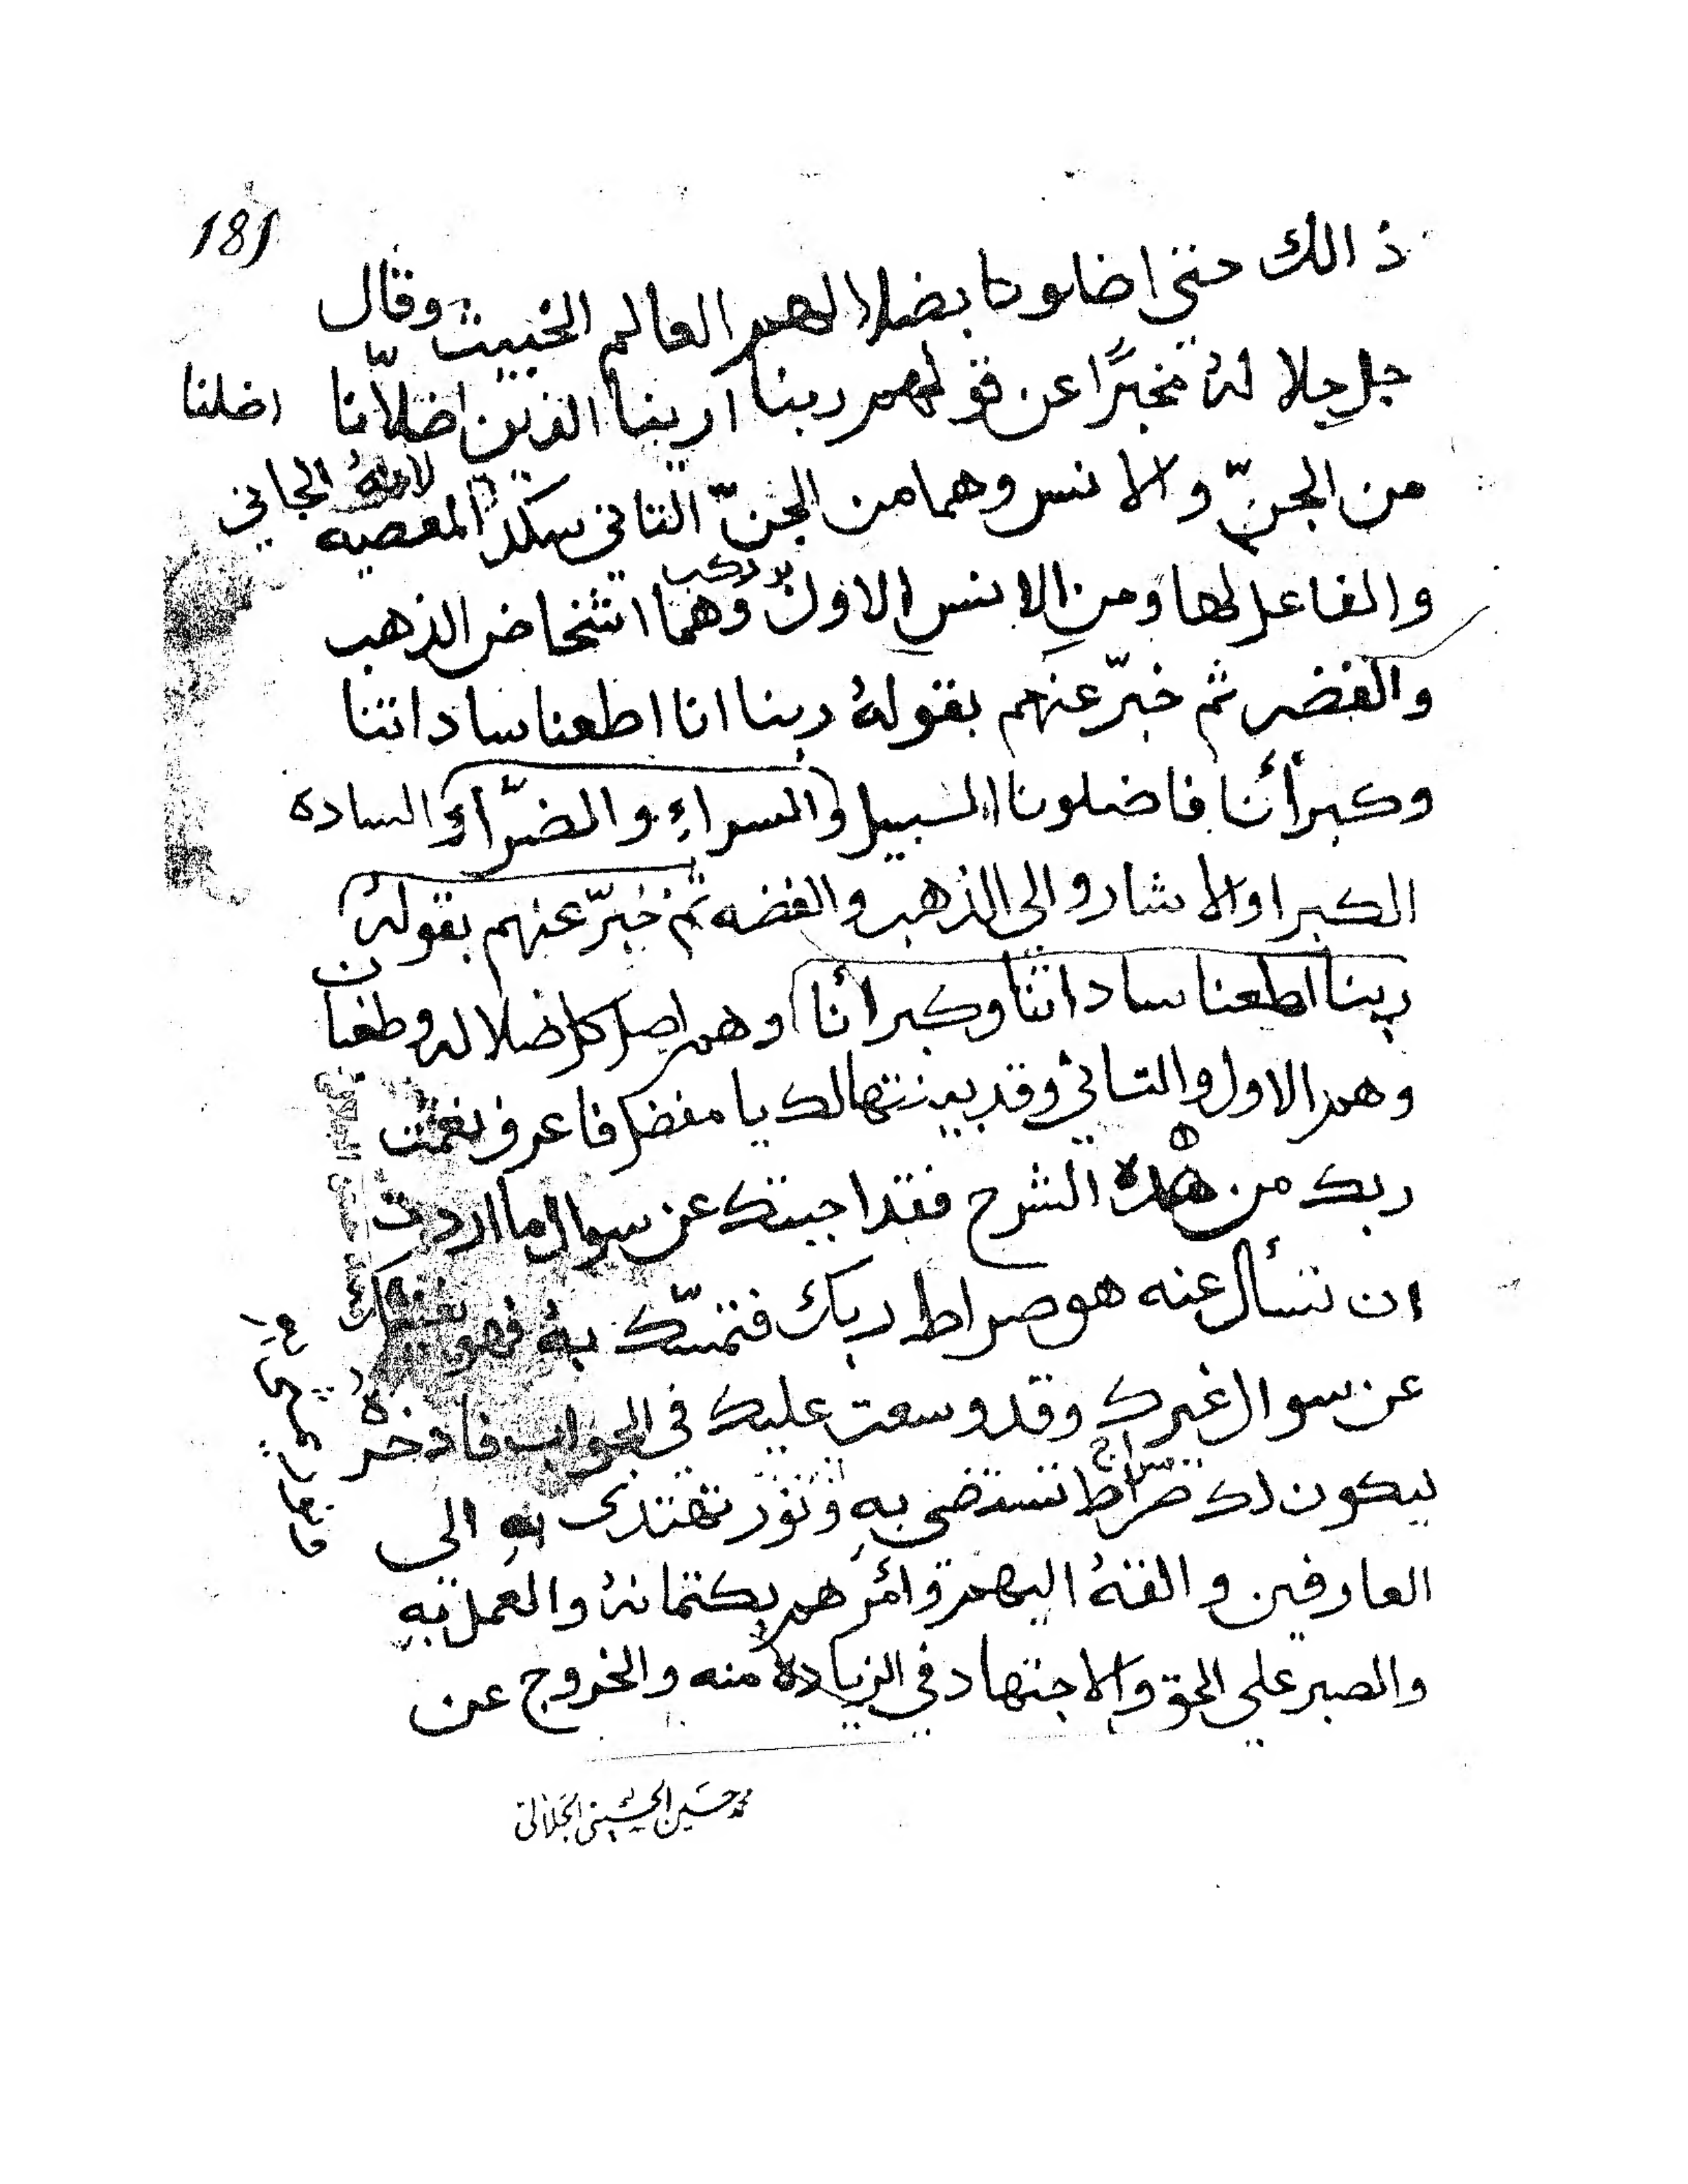 181
ذالك حتى اضلونا بضلالهم العالم الخبيث وقال
جل جلا لهُ مخبرًا عن قولهم ربنا ارينا الذين اضلّانا اضلنا
من الجنّ والانس وهما من الجنّ التاني المعصيه لانهُ الجاني
والفاعل لها ومن الانس الاول وهما اشخاص الذهب
والفضه ثم خبّر عنهم بقولهُ ربنا انا اطعنا ساداتنا
وكبرأنا فاضلونا السبيل والسراءِ والضرّآءِ الساده
الكبراوالاشارو الى الذهب والفضه ثم خبّر عنهم بقولهُ
ربنا اطعنا ساداتنا وكبرأنا وهم اصل كل ضلاله وطغيان
وهم الاول والتاني وقد بينتها لك يا مفضل فاعرف نعمت
ربك من هذه الشرح فقد اجبتك عن سوال ما اردت
ان تسأل عنه هو صراط ربك فتمسّك بهُ فهو يغنيك
عن سوال غيرك وقد وسعت عليك في الجواب فادخرهُ
ليكون لك صراط سراج تستضى بهِ ونور تهتدى بهِ الى
العارفين والقهُ اليهم وأمرهم بكتمانهُ والعمل به
والصبر على الحق والاجتهاد في الزياده منه والخروج عن
محمد حسين الحسيني الجلالي